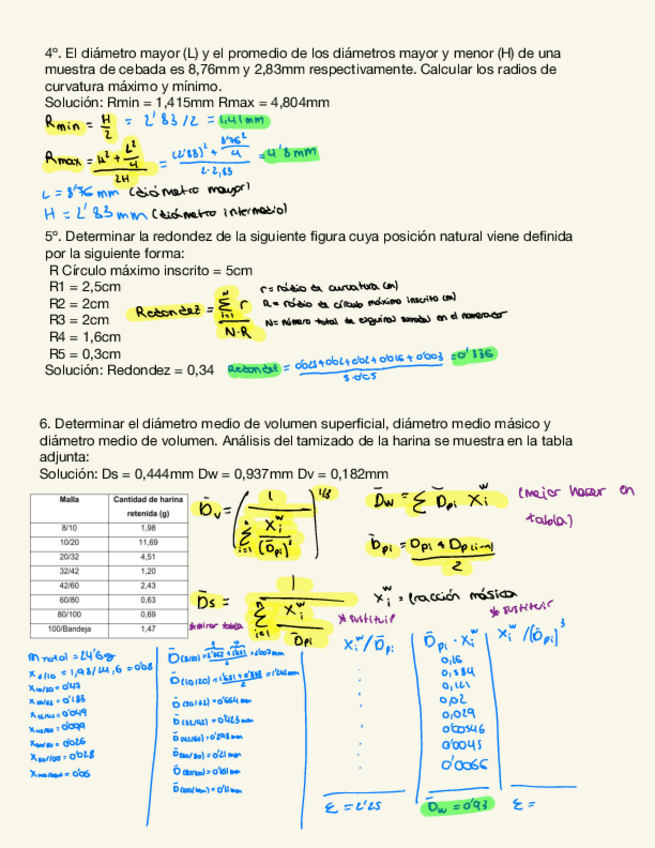 4º. El diámetro mayor (L) y el promedio de los diámetros mayor y menor (H) de una
muestra de cebada es 8,76mm y 2,83mm respectivamente. Calcular los radios de
curvatura máximo y mínimo.
Solución: Rmin = 1,415mm Rmax = 4,804mm
Rmin = H/2 = 2'83/2 = 1,41mm
Rmax = (H² + L²/4)/2H = ((2'83)² + 8'76²/4)/2·2,83 = 4'8mm
L = 8'76 mm (diámetro mayor)
H = 2'83mm (diámetro intermedio)
5º. Determinar la redondez de la siguiente figura cuya posición natural viene definida
por la siguiente forma:
R Círculo máximo inscrito = 5cm
R1 = 2,5cm
R2 = 2cm
R3 = 2cm
R4 = 1,6cm
R5 = 0,3cm
Redondez = Σ r / N·R
r = radio de curvatura (m)
R = radio de círculo máximo inscrito (m)
N = número total de esquinas sumadas en el numerador
Solución: Redondez = 0,34
Redondez = (0'025+0'02+0'02+0'016+0'003)/5·0'05 = 0'336
6. Determinar el diámetro medio de volumen superficial, diámetro medio másico y
diámetro medio de volumen. Análisis del tamizado de la harina se muestra en la tabla
adjunta:
Solución: Ds = 0,444mm Dw = 0,937mm Dv = 0,182mm
Malla Cantidad de harina retenida (g)
8/10 1,98
10/20 11,69
20/32 4,51
32/42 1,20
42/60 2,43
60/80 0,63
80/100 0,69
100/Bandeja 1,47
D̄v = (1 / Σ Xiʷ/(D̄pi)³)^1/3
D̄w = Σ D̄pi Xiʷ
(mejor hacer en
tabla)
D̄pi = (Dpi + Dp(i-1))/2
D̄s = 1 / Σ Xiʷ/D̄pi
Xiʷ = fracción másica
*mirar tabla
*sustituir
*sustituir
m total = 24'6g
X8/10 = 1,98/24,6 = 0'08
X10/20 = 0'47
X20/32 = 0'183
X32/42 = 0'049
X42/60 = 0'099
X60/80 = 0'026
X80/100 = 0'028
= 0'06
D̄(8/10) = = 2'007mm
D̄(10/20) =
D̄(20/32) = mm
D̄(32/42) = 0'423mm
D̄(42/60) = mm
D̄(60/80) = 0'21mm
D̄(80/100) = mm
= 0'11mm
Xiʷ/D̄pi
Σ = 2'25
D̄pi · Xiʷ
0,16
0,584
0,121
0,02
0,029
0'00546
0'0045
0'0066
D̄w = 0'93
Xiʷ/(D̄pi)³
Σ =